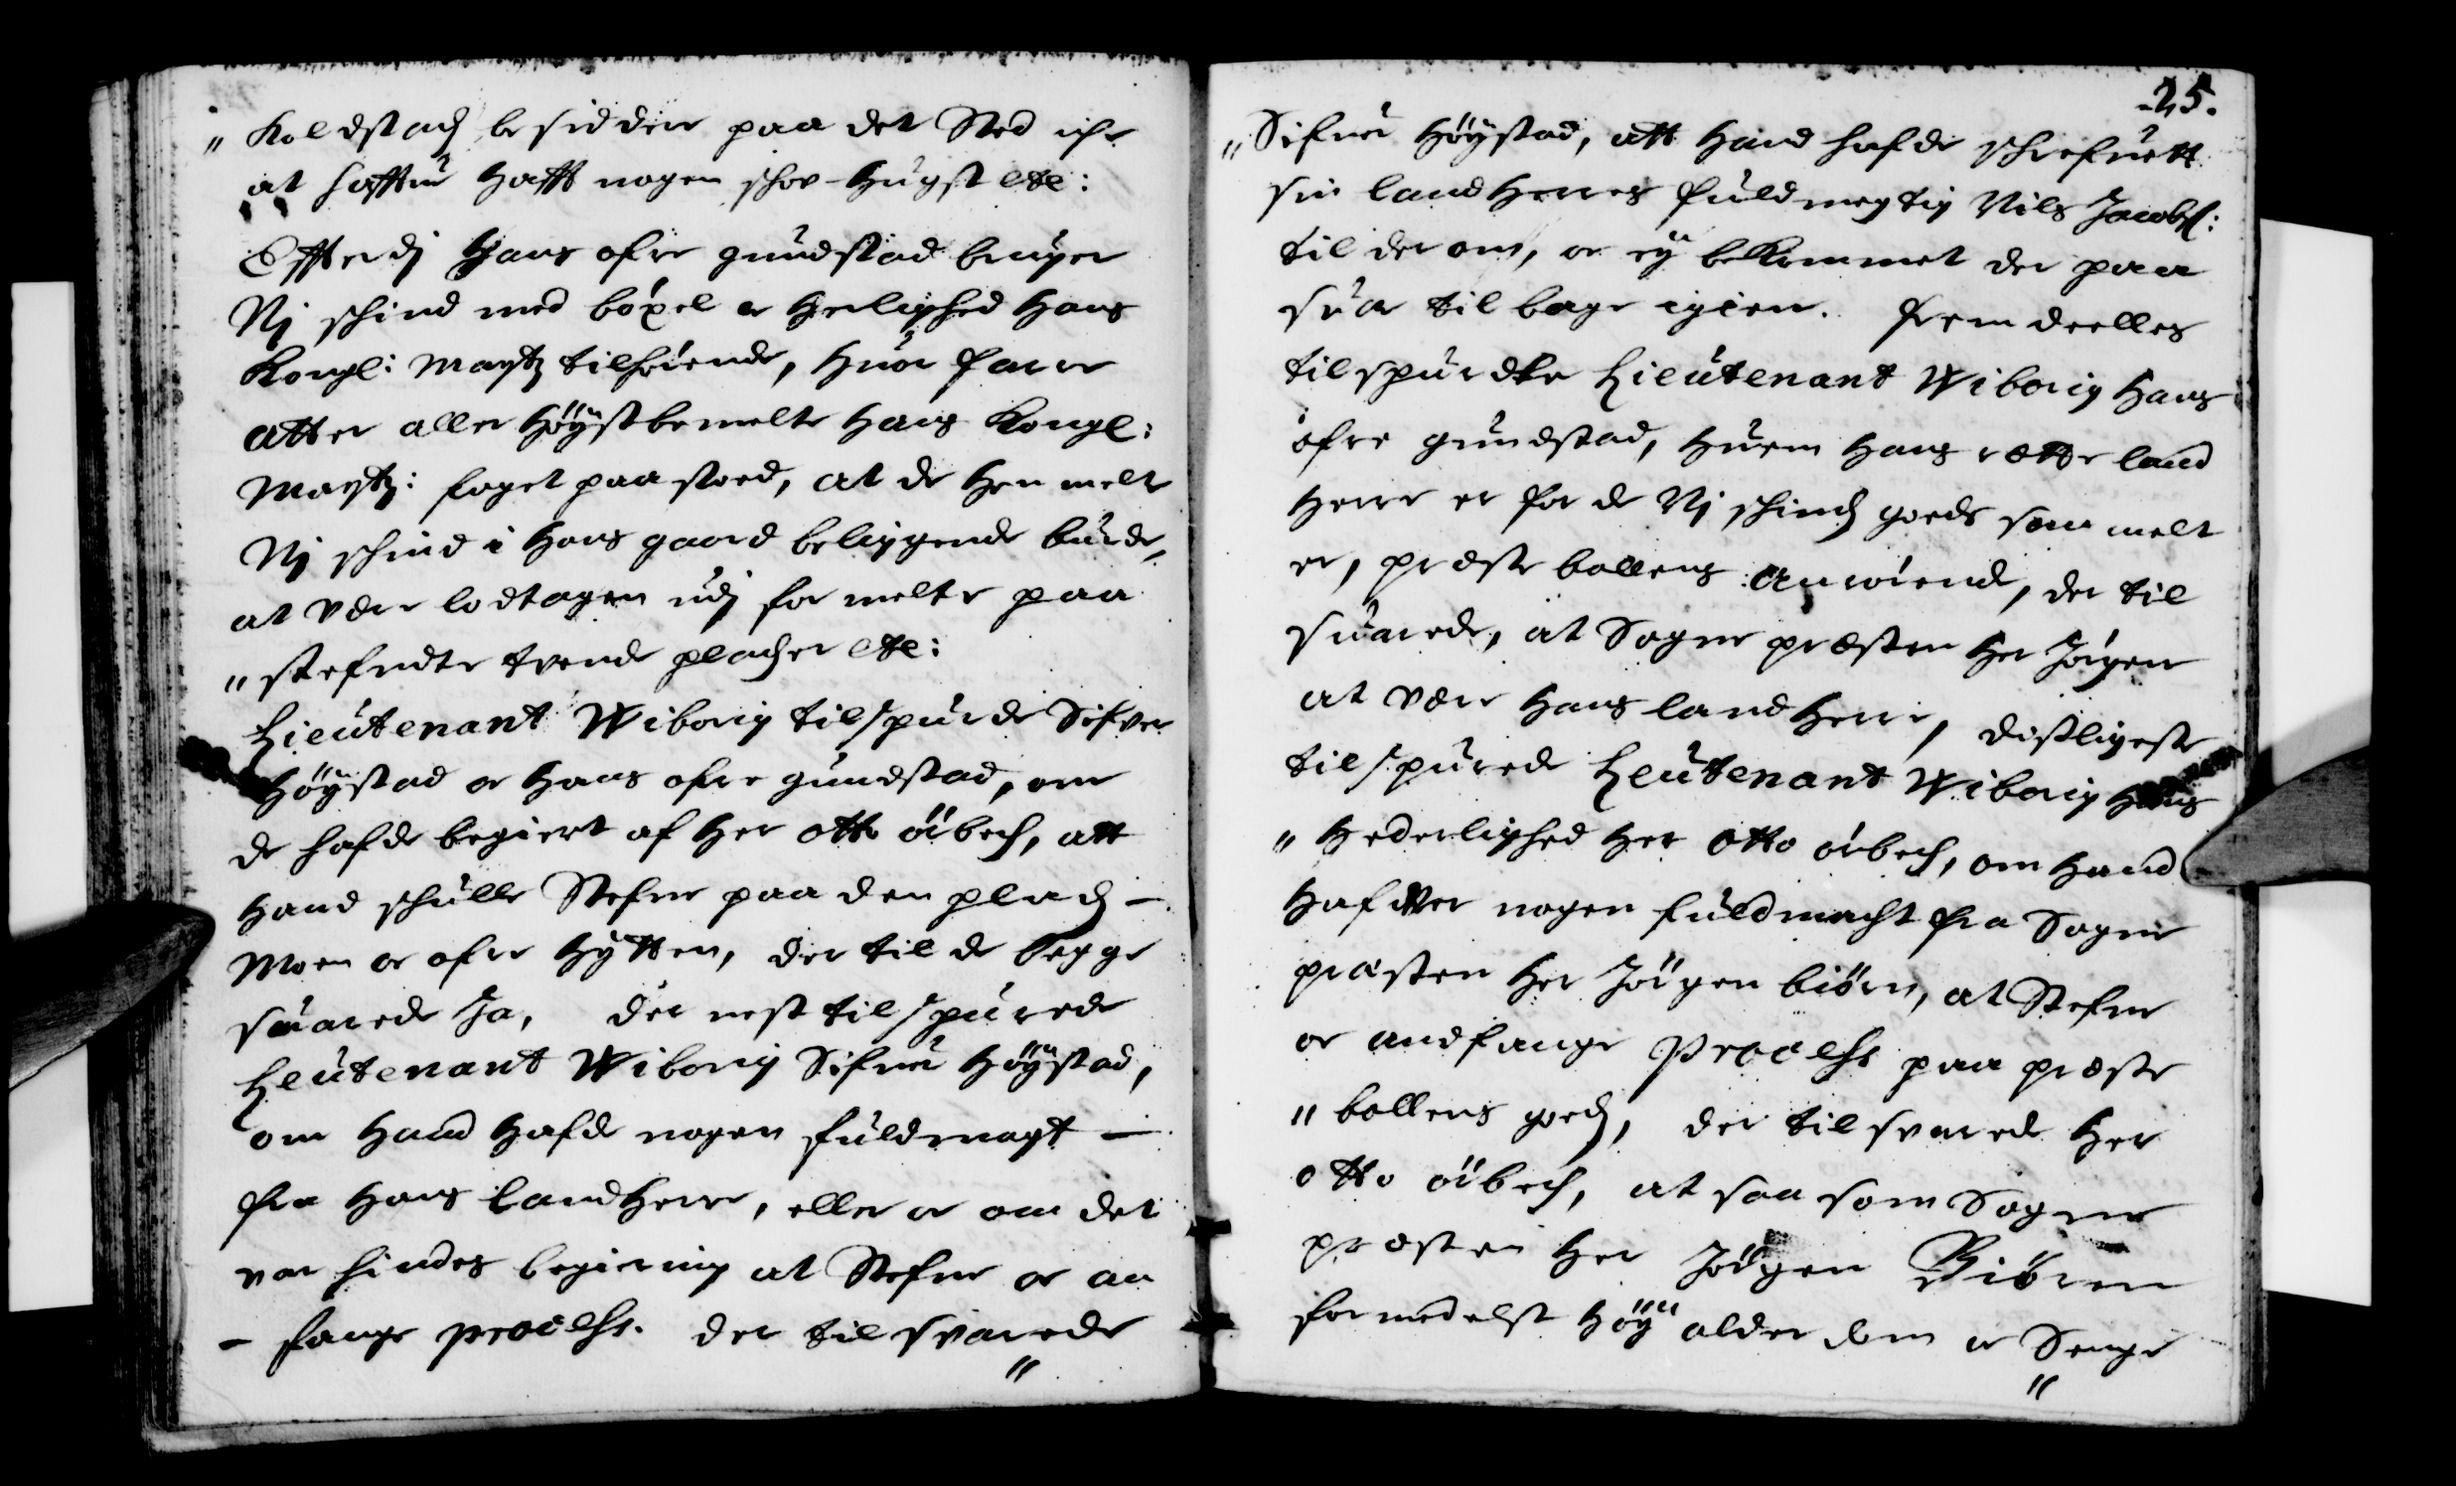 " Koldstad besidder paa det Sted iche
at haffue hafft nogen schov-hugst etc:
Effterdj Hans øfre gundstad bruger
Nj schind med böxel og herlighed Hans
Kongl: Maytz tilhörende, huor fore
atter aller Höystbemelte Hans Kongl:
Maytz: foget paastoed, at de her melte
Nj schind i Hans gaard beliggende burde,
at være lodtagen udj for melte paa
" stefndte tvende pladser etc:
Lieutenant Wiborig tilspurde Sifver
Höystad og Hans øfre gundstad, om
de hafde begiert af Her Otto öibech, att
Hand schulle Stefne paa den plads -
Moen og øfre Hytten, der til de begge
suarede Ja, der nest tilspurede
Leutenant Wiborig Sifuer Höystad,
om Hand hafde nogen fuldmagt -
fra Hans landherre, eller og om det
var hindes begiering at Stefne og an
- fange process. der til svarede
"
25.
" Sifuer Höystad, att Hand hafde schrefuett
sin landherres fuldmegtig Nils Jacobs:
til der om, og ey bekommet der paa
suar tilbage igien. fremdeelles
tilspurdte Lieutenant Wiborig Hans
øfre gundstad, huem Hans rette land
herre er for de Nj schinds goeds som melt
er, præstebollens anrörende, der til
suarede, at Sogne præsten Her Jörgen
at være Hans landherre, disligeste
tilspurede Leutenant Wiborig Hans
" Hederlighed Her Otto öibech, om Hand
hafver nogen fuldmacht fra Sogne
præsten Her Jörgen Biörn, at Stefne
og andfange Process paa præste
" bollens goeds, der til svarede Her
Otto öibech, at saa som Sogne
præsten Her Jörgen Biören
formedelst Höy alderdom og Senge
"